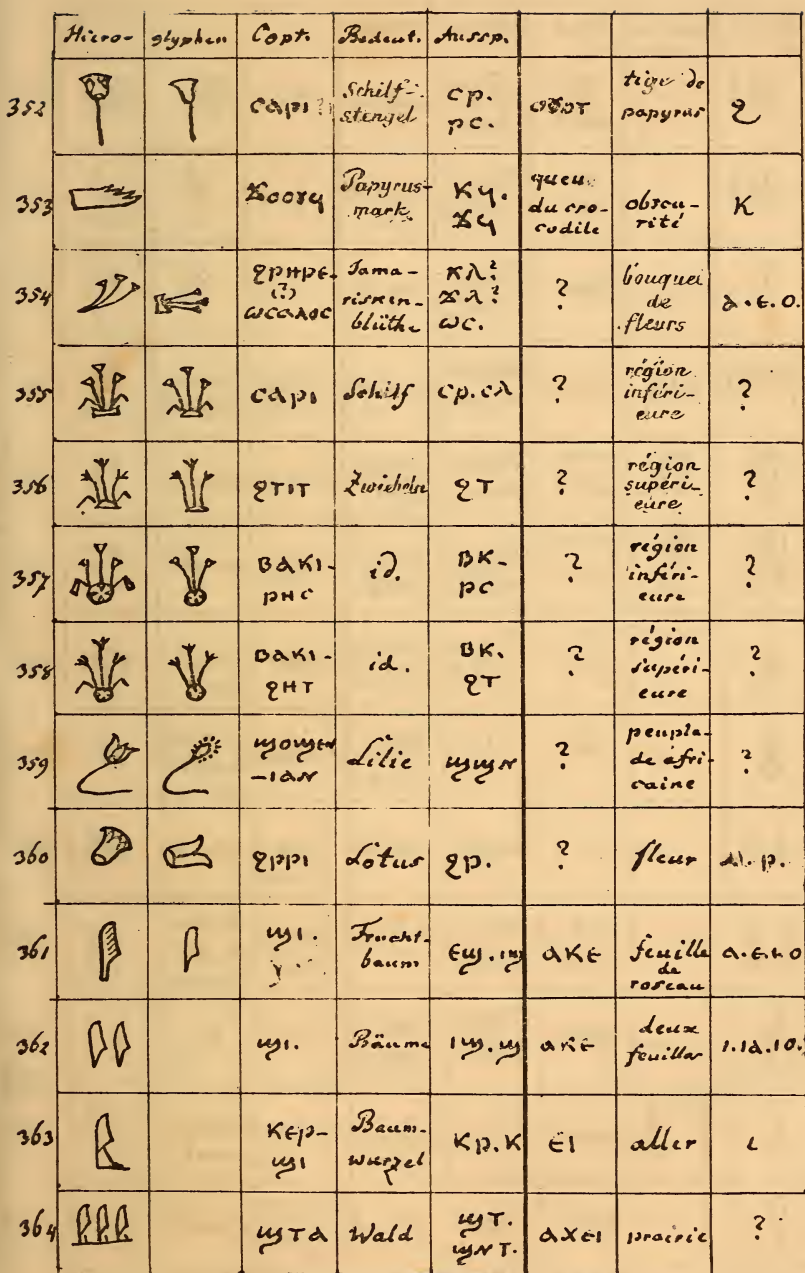 Hiero- glyphen Copt. Bedeut. Aussp.
352 ⲥⲁⲣⲓ ? Schilf- stengel ⲥⲣ. ⲣⲥ. tige de papyrus ϩ
353 Papyrus- mark ⲕϥ. ϫϥ queue du cro- codile obscu- rité K
354 ϩⲣⲏⲣⲉ- (?) Tama- risken- blüthe ⲕⲗ? ϫⲗ? ⲱⲥ. ? bouquet de fleurs ⲁ.ⲉ.ⲟ.
355 ⲥⲁⲣⲓ Schilf ⲥⲣ.ⲥⲗ ? région inféri- eure ?
356 ϩⲧⲓⲧ Zwiebeln ϩⲧ ? région supéri- eure ?
357 ⲃⲁⲕⲓ- ⲣⲏⲥ id. ⲃⲕ- ⲣⲥ ? région inféri- eure ?
358 ⲃⲁⲕⲓ- ϩⲏⲧ id. ⲃⲕ. ϩⲧ ? région supéri- eure ?
359 ϣⲟϣⲉⲛ -ⲓⲁⲛ Lilie ϣϣⲛ ? peupla- de afri- caine ?
360 ϩⲣⲣⲓ Lotus ϩⲣ. ? fleur ⲙ.ⲣ.
361 ϣⲓ. Frucht- baum ⲉϣ.ⲓϣ ⲁⲕⲉ feuille de roseau ⲁ.ⲉ.ⲏ.ⲟ
362 ϣⲓ. Bäume ⲓϣ.ϣ ⲁⲕⲉ deux feuilles ⲓ.ⲓⲁ.ⲓⲟ.
363 ⲕⲉⲣ- ϣⲓ Baum- wurzel ⲕⲣ.ⲕ ⲉⲓ aller ⲓ
364 ϣⲧⲁ Wald ϣⲧ. ϣⲛⲧ. ⲁⲭⲉⲓ prairie ?